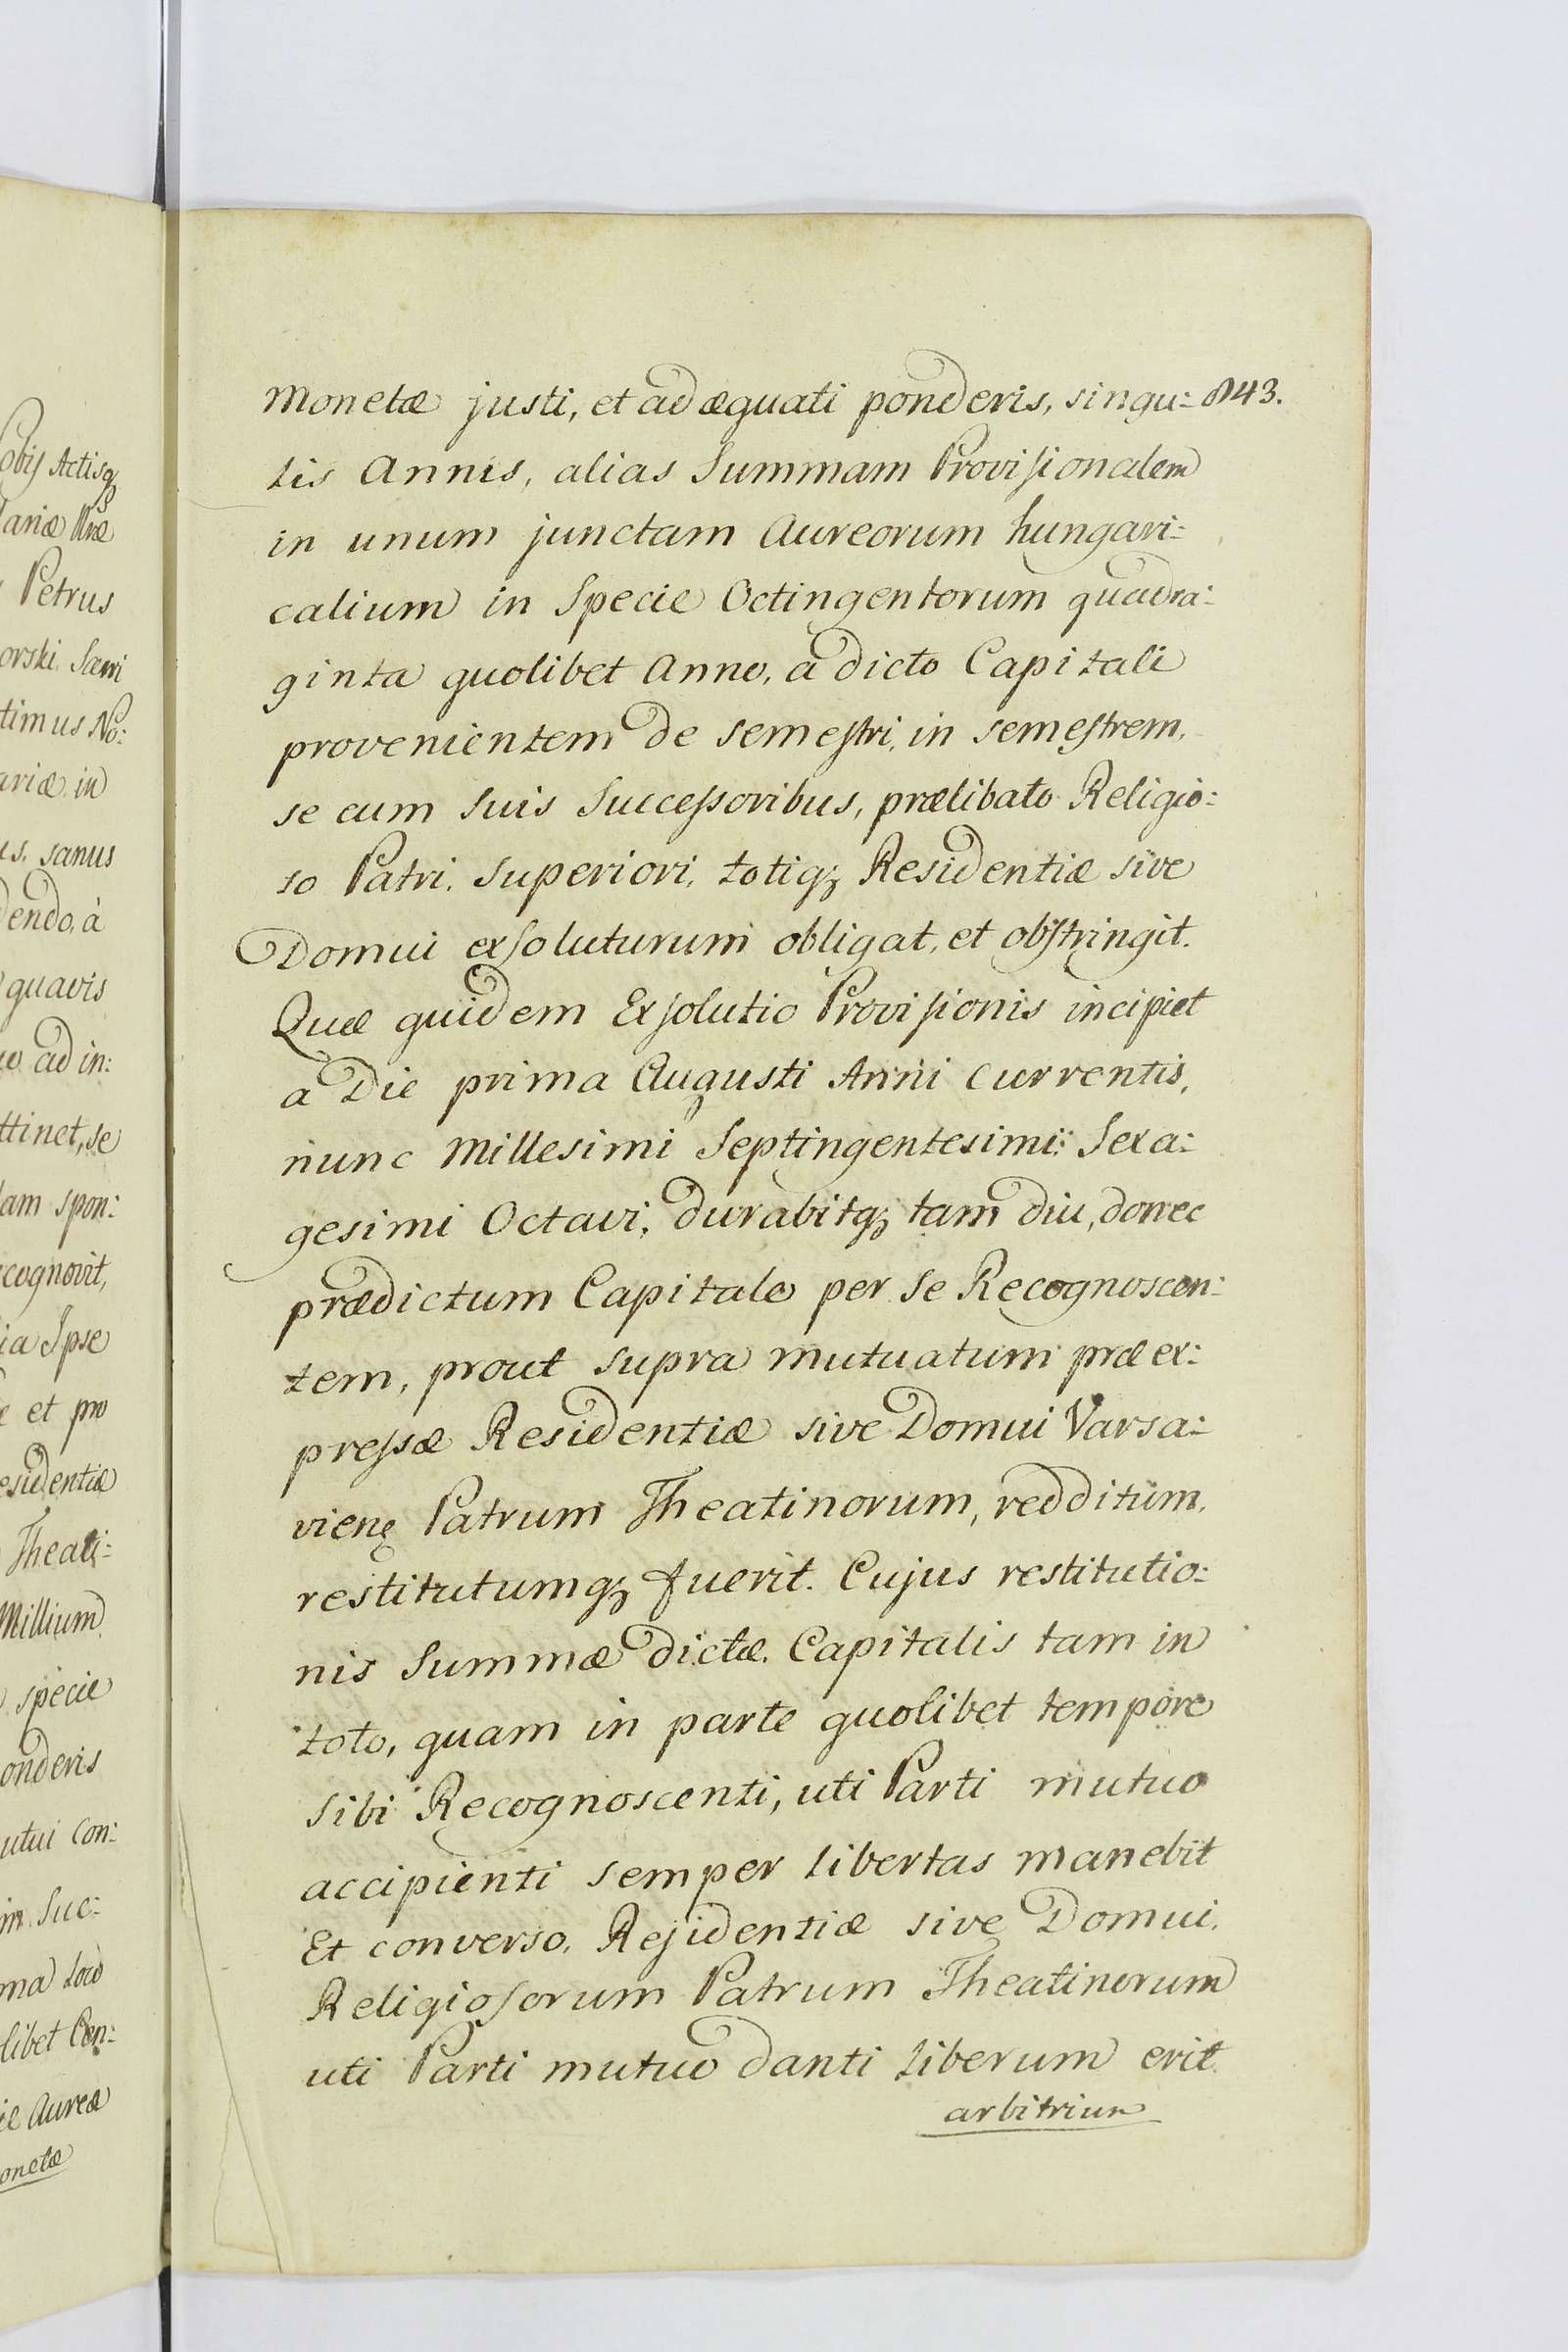 Monetæ justi, et adæquati ponderis, singu: 843.
lis Annis, alias Summam Provisionalem
in unum junctam Aureorum hungari:
calium in Specie Octingentorum quadra:
ginta quolibet Anno, a dicto Capitali
provenientem de semestri, in semestrem,
se cum suis Successoribus, prælibato Religio:
so Patri, Superiori, totiq; Residentiæ sive
Domui exsoluturum obligat, et obstringit.
Quæ quidem Exsolutio Provisionis incipiet
a Die prima Augusti Anni currentis,
nunc Millesimi Septingentesimi Sexa:
gesimi Octavi, durabitq; tam diu, donec
prædictum Capitale per se Recognoscen:
tem, prout supra mutuatum præex:
pressæ Residentiæ sive Domui Varsa:
vienę Patrum Theatinorum, redditum,
restitutumq; fuerit. Cujus restitutio:
nis Summæ dictæ Capitalis tam in
toto, quam in parte quolibet tempore
sibi Recognoscenti, uti Parti mutuo
accipienti semper libertas manebit
Et converso, Residentiæ sive Domui,
Religiosorum Patrum Theatinorum
uti Parti mutuo danti liberum erit
arbitrium
obis Actisq
Petrus
orski
timus No:
in
sanus
dendo, à
quavis
ad in:
ttinet, se
am spon:
cognovit,
ia Ipse
et pro
esidentiæ
Theati:
Millium
specie
onderis
utui con:
Suc:
ma loco
libet Con:
Aureæ
onetæ